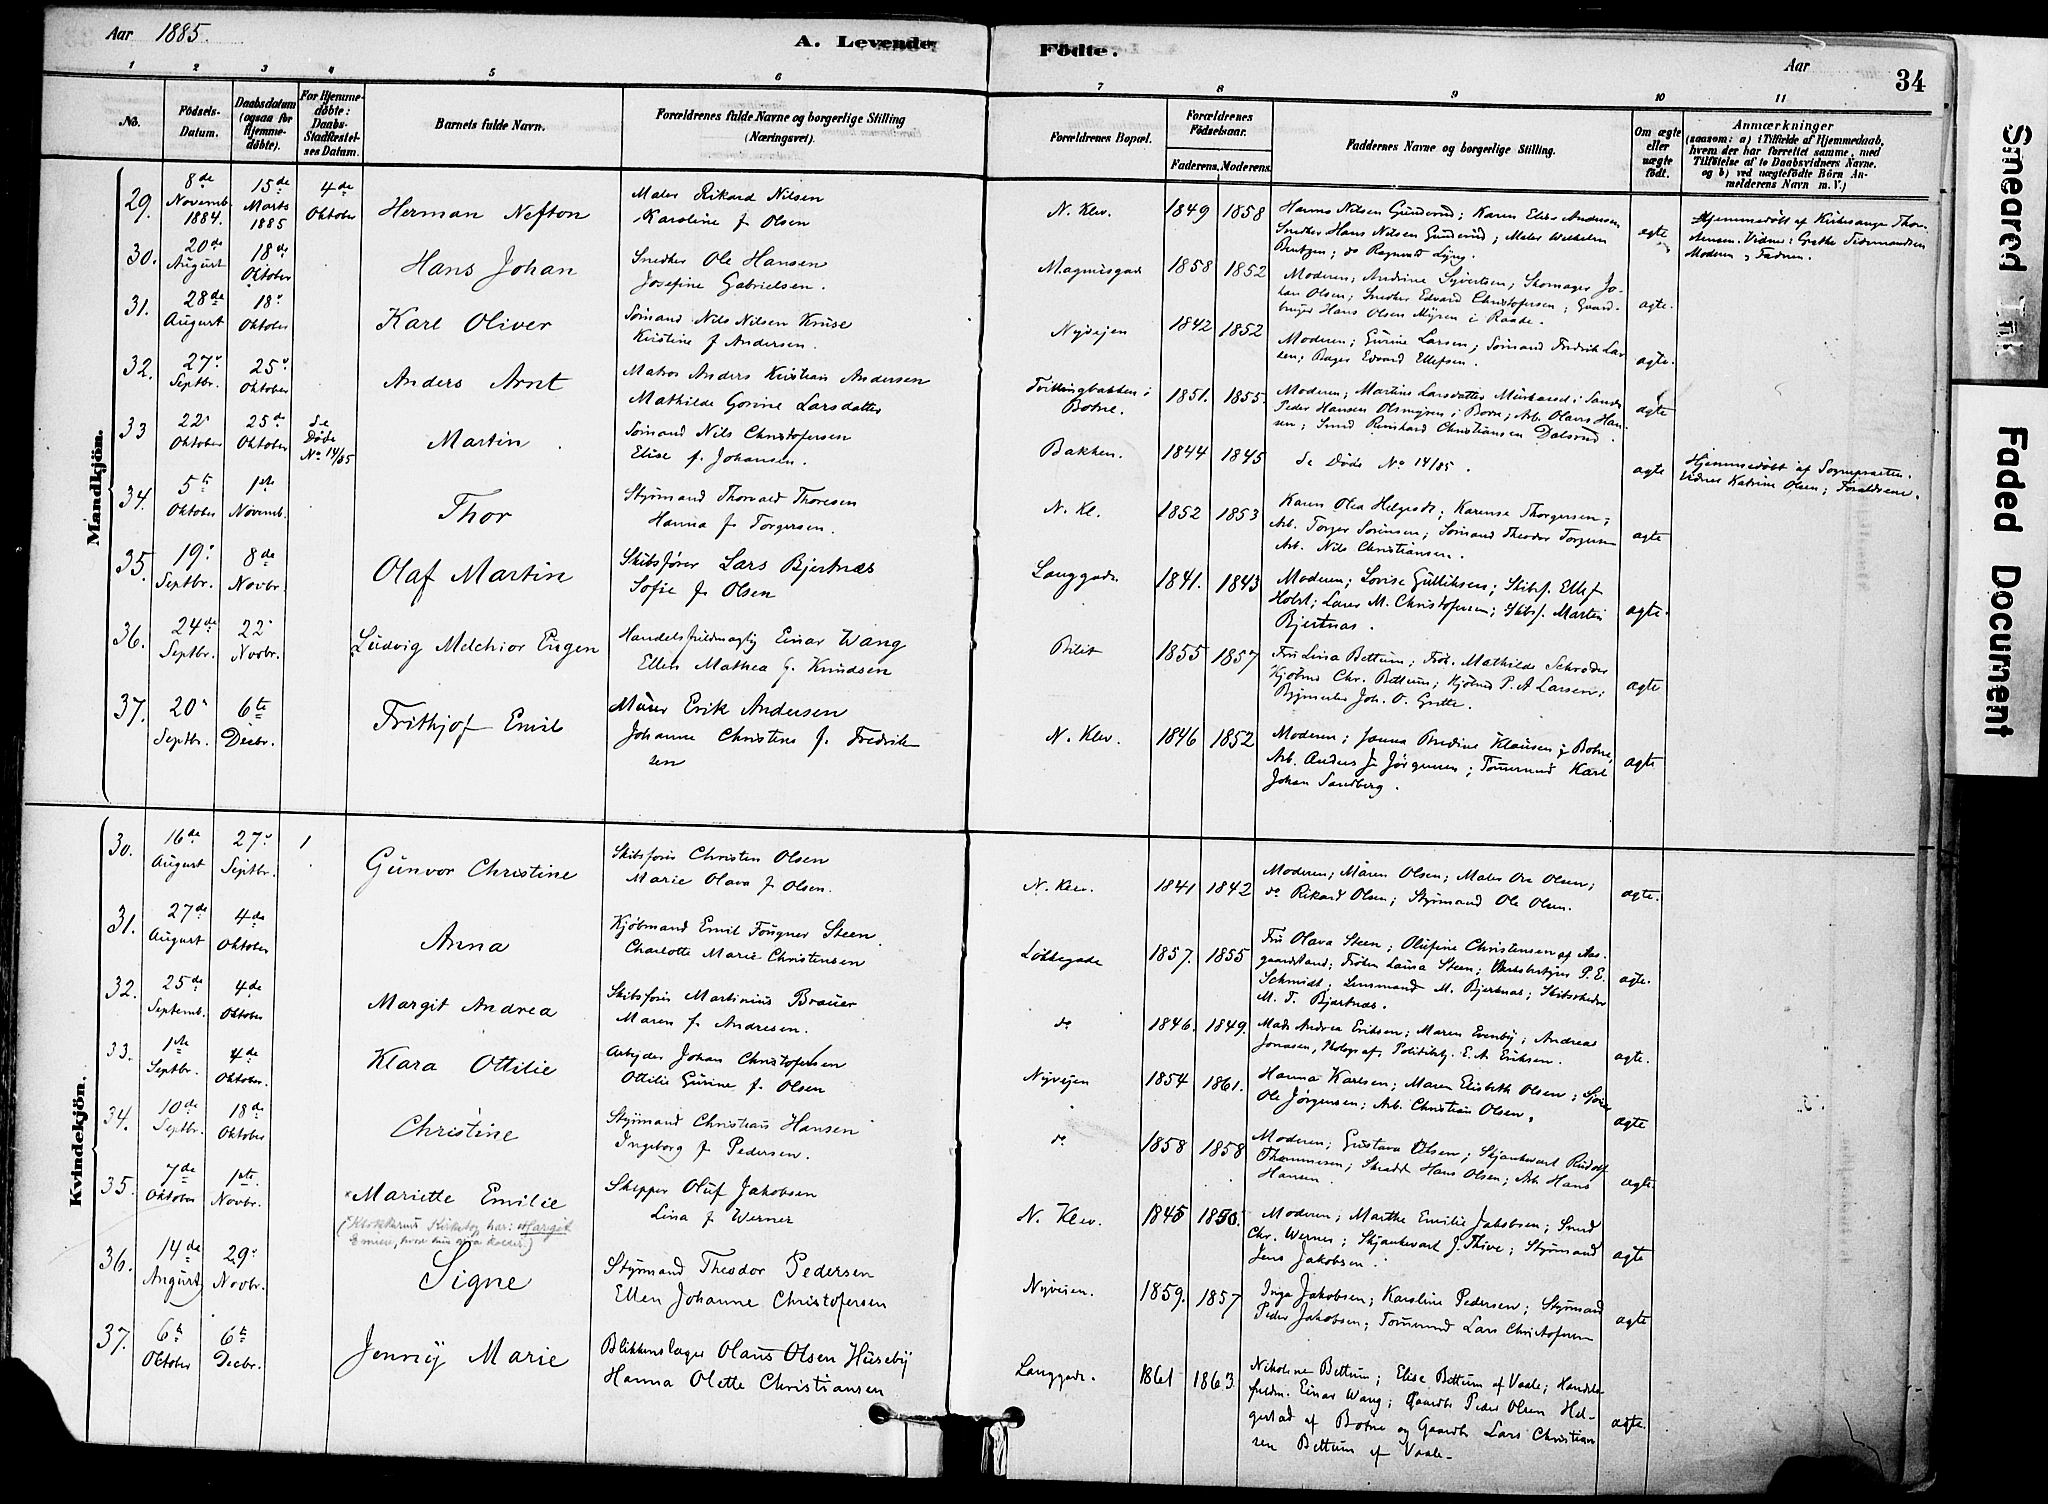 Aar 1885.
A. Levende Födte.
Aar
34
1 2 3 4 5 6 7 8 9 10 11
No.
Födsels-Datum.
Daabsdatum (ogsaa for Hjemme-döbte).
For Hjemme-döbte: Daabs-Stadfæstel-ses Datum.
Barnets fulde Navn.
Forældrenes fulde Navne og borgerlige Stilling (Næringsvei).
Forældrenes Bopæl.
Forældrenes Födselsaar.
Faderens. Moderens.
Faddernes Navne og borgerlige Stilling.
Om ægte eller uægte födt.
Anmærkninger
(saasom: a) i Tilfælde af Hjemmedaab, hvem der har forrettet samme, med Tilföielse af to Daabsvidners Navne, og b) ved uægtefödte Börn An-melderens Navn m. V.)
Mandkjön.
29. 8de Novemb. 1884. 15de Marts 1885 4de Oktober
Herman Nefton
Maler Rikard Nilsen
Karoline f Olsen
N. Klev. 1849 1858
Hanna Nilsen Gunderud; Karen Elise Andersen
Snedker Hans Nilsen Gunderud; Maler Wilhelm
Bentzen; do Ragnvald Ljng.
ægte
Hjemmedöbt af Kirkesanger Thor-
Moderen & Faderen.
30. 20de August 18de Oktober
Hans Johan
Snedker Ole Hansen
Josefine Gabrielsen.
Magnusgade 1858 1852
Moderen; Andrine Syvertsen; Skomager Jo-
han Olsen; Snedker Edvard Christofersen; Gaard-
bruger Hans Olsen Myren i Raade.
ægte.
31. 28de August 18. Oktober
Karl Oliver
Sömand Nils Nilsen Kruse
Kirstine f Andersen.
Nyvejen 1842 1852
Moderen; Gurine Larsen; Sömand Fredrik Lar-
sen; Bager Edvard Ellefsen.
ægte.
32. 27. Septbr. 25. Oktober
Anders Arnt
Matros Anders Kristian Andersen
Mathilde Gorine Larsdatter
Tvillingbakken i Botne. 1851. 1855.
Moderen; Martine Larsdatter
Peder Hansen Olsmyren i Botne; Arb. Olaus Han-
sen; Smed Reinhard Christiansen Dalsrud.
ægte
33 22 Oktober 25de Oktober Se Døde No 14/85
Martin
Sömand Nils Christofersen
Elise f. Johansen.
Bakken. 1844 1845
Se Døde No 14/85.
ægte
Hjemmedöbt af Sognepræsten.
Vidner Katrine Olsen; Forældrene.
34. 5te Oktober 1ste Novemb.
Thor
Styrmand Thorvald Thoresen
Hanna f. Torgersen.
N. Kl. 1852 1853
Karen Olea Helgesdt; Karense Thorgersen;
Arb. Torger Sörensen; Sömand Theodor Torgersen
Arb. Nils Christiansen.
ægte
35. 19. Septbr. 8de Novbr.
Olaf Martin
Skibsförer Lars Bjertnæs
Sofie f. Olsen
Langgade. 1841. 1843
Moderen; Lovise Gulliksen; Skibsf. Ellef
Holst; Lars M. Christofersen; Skibsf. Martin
Bjertnæs.
ægte.
36. 24de Septbr. 22. Novbr.
Ludvig Melchior Eugen
Handelsfuldmægtig Einar Wang
Ellen Mathea f. Knudsen
1855 1857
Fru Lina Bettum; Frök. Mathilde Schröder
Kjöbmd Chr. Bettum; Kjöbmd P. A Larsen;
Joh. O. Grette.
ægte
37. 20. Septbr. 6te Decbr.
Frithjof Emil
Murer Erik Andersen
Johanne Christine f. Fredrik-
sen
N. Klev. 1846 1852
Moderen; Janna Klausen i Botne,
Arb. Anders J. Jörgensen; Tömmermd Karl
Johan Sandberg.
ægte
Kvindekjön.
30. 16de August 27. Septbr. 1
Gunvor Christine
Skibsförer Christen Olsen
Marie Olava f Olsen.
N. Klev. 1841 1842
Moderen; Maren Olsen; Maler Olsen;
do Rikard Olsen; Styrmand Ole Olsen.
ægte.
31. 27de August 4de Oktober
Anna
Kjöbmand Emil Fougner Steen.
Charlotte Marie Christensen
Lökkegade 1857. 1855
Fru Olava Steen; Olufine Christensen af Aas-
gaardstrand; Fröken Laura Steen; P. E.
Schmidt; Lensmand M. Bjertnæs; Skibsreder
M. T. Bjertnæs.
ægte.
32. 25de Septemb. 4de Oktober
Margit Andrea
Skibsförer Martinius Brauer
Maren f. Andresen.
do 1846. 1849.
Mad. Andrea Eriksen; Maren Evenby; Andreas
Jonasen, Fotograf, Politibtj. E. A. Eriksen.
ægte.
33. 1ste Septbr. 4de Oktober.
Klara Ottilie
Arbejder Johan Christofersen
Ottilie Gurine f. Olsen
Nyvejen 1854 1861.
Hanna Karlsen; Maren Elisbeth Olsen;
Ole Jörgensen; Arb. Christian Olsen.
ægte
34. 10de Septbr. 18de Oktober
Christine
Styrmand Christian Hansen
Ingeborg f Pedersen.
do 1858 1858
Moderen; Gustava Olsen; Skjænkevært Rudolf
Thommesen; Skrædd. Hans Olsen; Arb. Hans
Hansen.
ægte.
35. 7de Oktober 1ste. Novbr.
Mariette Emilie
(Klokkerens Kirkebog har: Margit
Emilie, hvad hun ogsaa kaldes)
Skipper Oluf Jakobsen
Lina f Werner
N. Klev. 1845 1850.
Moderen; Marthe Emilie Jakobsen; Smed
Chr. Werner; Skjænkevært J. Thive; Styrmand
Jens Jakobsen.
ægte
36. 14de August 29. Novbr.
Signe
Styrmand Theodor Pedersen
Ellen Johanne Christofersen
Nyveien. 1859. 1857
Inga Jakobsen; Karoline Pedersen; Styrmand
Peder Jakobsen; Tömmermd Lars Christofersen
ægte
37. 6te Oktober 6te Decbr.
Jenny Marie
Blikkenslager Olaus Olsen Huseby
Hanna Olette Christiansen
Langgade. 1861 1863.
Nikoline Bettum; Elise Bettum af Vaale; Handels-
fuldm. Einar Wang; Gaardbr Peder Olsen Hel-
gestad af Botne og Gaardb Lars Christian-
sen Bettum af Vaale.
ægte.
Smeared Ink
Faded Document